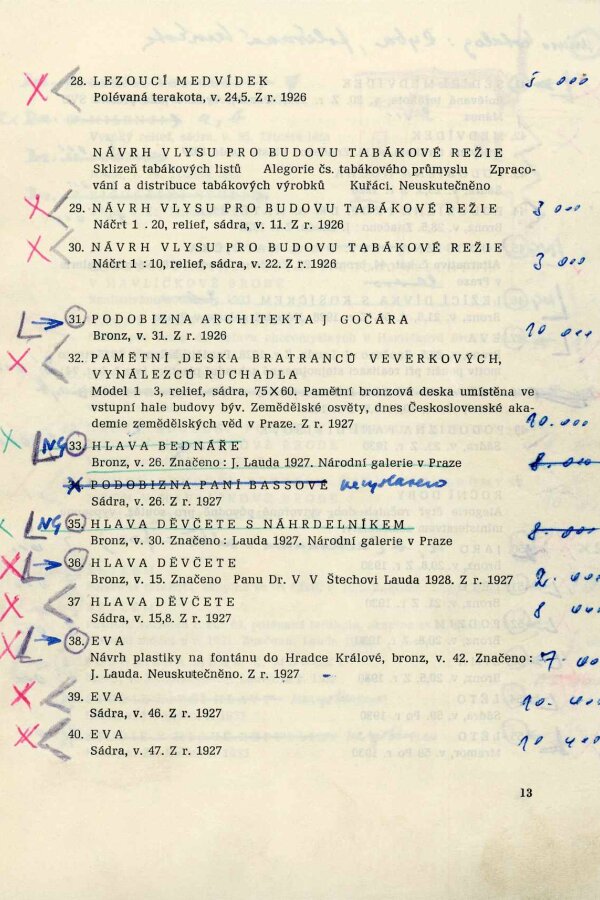 28. LEZOUCÍ MEDVÍDEK 5 000
Polévaná terakota, v. 24,5. Z r. 1926
NÁVRH VLYSU PRO BUDOVU TABÁKOVÉ REŽIE
Sklizeň tabákových listů Alegorie čs. tabákového průmyslu Zpraco-
vání a distribuce tabákových výrobků Kuřáci. Neuskutečněno
29. NÁVRH VLYSU PRO BUDOVU TABÁKOVÉ REŽIE 3 000
Náčrt 1 . 20, relief, sádra, v. 11. Z r. 1926
30. NÁVRH VLYSU PRO BUDOVU TABÁKOVÉ REŽIE
Náčrt 1 : 10, relief, sádra, v. 22. Z r. 1926 3 000
31. PODOBIZNA ARCHITEKTA J GOČÁRA
Bronz, v. 31. Z r. 1926 10 000
32. PAMĚTNÍ DESKA BRATRANCŮ VEVERKOVÝCH,
VYNÁLEZCŮ RUCHADLA
Model 1 3, relief, sádra, 75×60. Pamětní bronzová deska umístěna ve
vstupní hale budovy býv. Zemědělské osvěty, dnes Československé aka-
demie zemědělských věd v Praze. Z r. 1927 10.000
NG 33. HLAVA BEDNÁŘE
Bronz, v. 26. Značeno: J. Lauda 1927. Národní galerie v Praze 8.000
PODOBIZNA PANÍ BASSOVÉ nevystaveno
Sádra, v. 26. Z r. 1927
NG 35. HLAVA DĚVČETE S NÁHRDELNÍKEM
Bronz, v. 30. Značeno: Lauda 1927. Národní galerie v Praze 8.000
36. HLAVA DĚVČETE
Bronz, v. 15. Značeno Panu Dr. V V Štechovi Lauda 1928. Z r. 1927 2.000
37 HLAVA DĚVČETE
Sádra, v. 15,8. Z r. 1927 8 000
38. EVA
Návrh plastiky na fontánu do Hradce Králové, bronz, v. 42. Značeno: 7.000
J. Lauda. Neuskutečněno. Z r. 1927
39. EVA
Sádra, v. 46. Z r. 1927
40. EVA
Sádra, v. 47. Z r. 1927
13